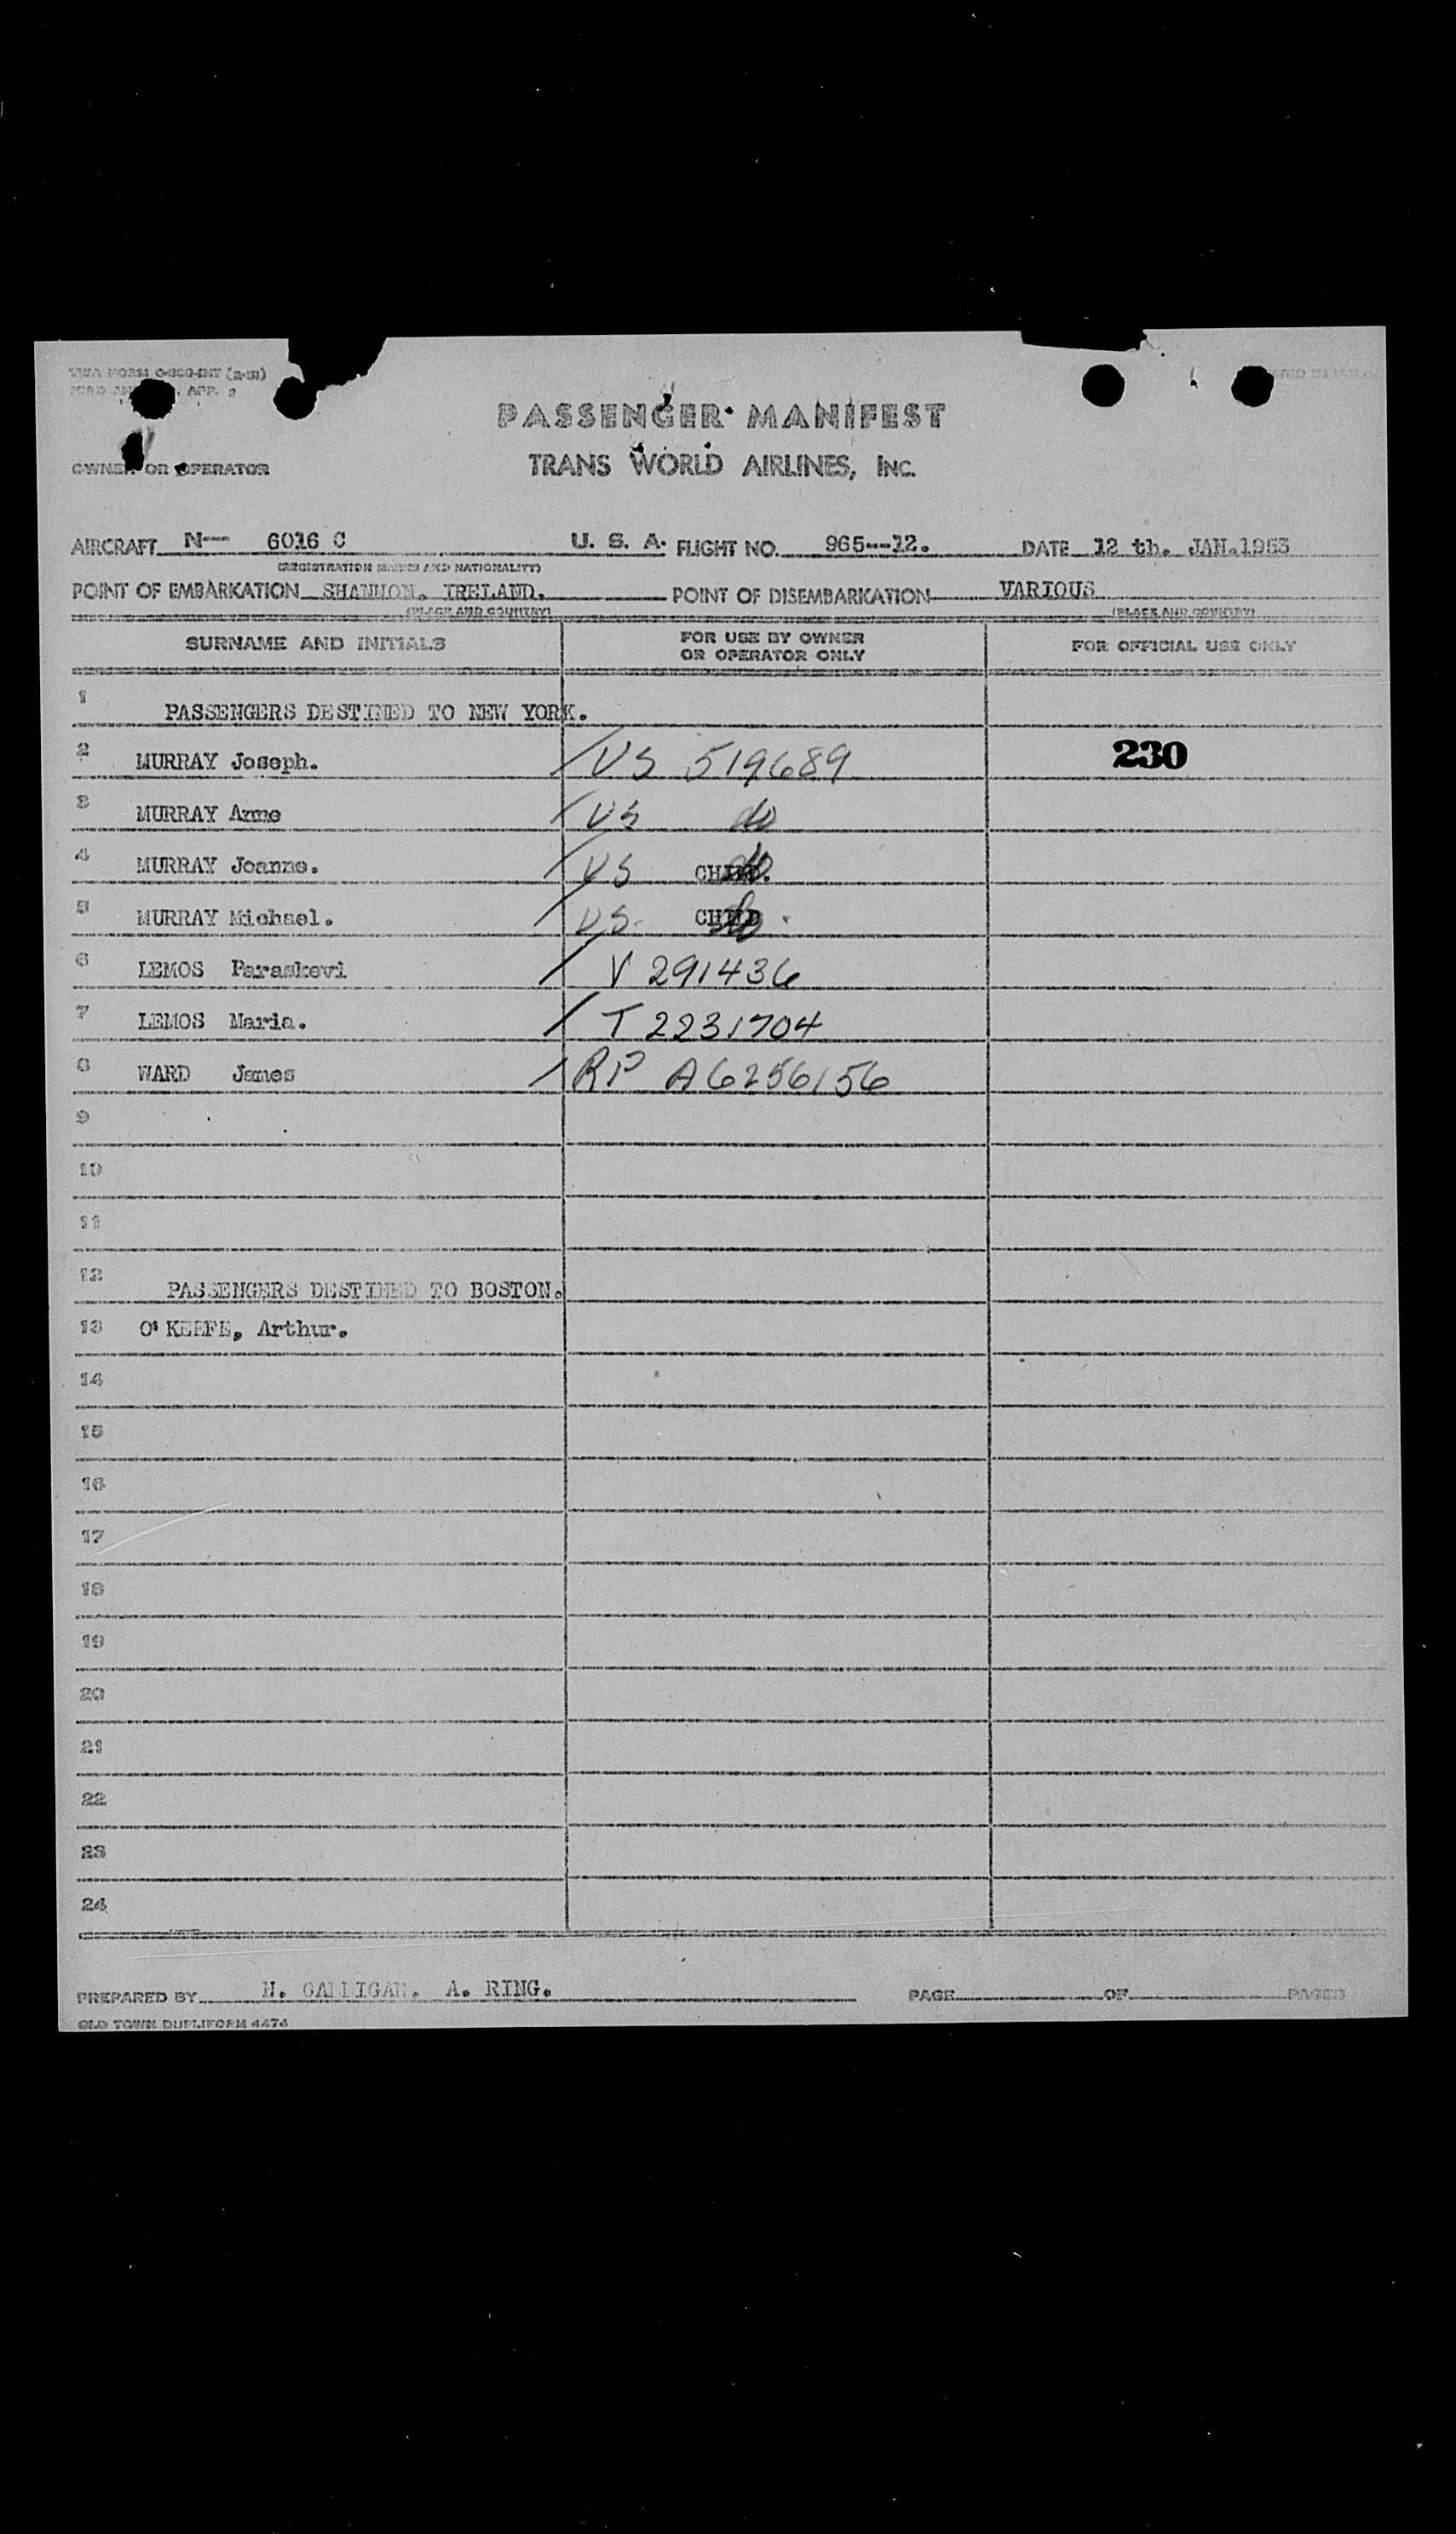 TWA FORM O-800-INT (2-51)
APP. 2
PASSENGER MANIFEST
OWNER OR OPERATOR
TRANS WORLD AIRLINES, INC.
AIRCRAFT N-- 6016 C U. S. A. FLIGHT NO. 965--12. DATE 12 th. JAN.1953
(REGISTRATION MARKS AND NATIONALITY)
POINT OF EMBARKATION SHANNON. IRELAND. POINT OF DISEMBARKATION VARIOUS
(PLACE AND COUNTRY) (PLACE AND COUNTRY)
SURNAME AND INITIALS FOR USE BY OWNER OR OPERATOR ONLY FOR OFFICIAL USE ONLY
1 PASSENGERS DESTINED TO NEW YORK.
2 MURRAY Joseph. / US 519689 230
3 MURRAY Anne / US do
4 MURRAY Joanne. / US CHILD. do
5 MURRAY Michael. / US. CHILD. do
6 LEMOS Paraskevi / V 291436
7 LEMOS Maria. / T 2231704
8 WARD James / RP A6256156
9
10
11
12 PASSENGERS DESTINED TO BOSTON.
13 O'KEEFE, Arthur.
14
15
16
17
18
19
20
21
22
23
24
PREPARED BY N. GALLIGAN. A. RING. PAGE OF PAGES
OLD TOWN DUPLIFORM 4474